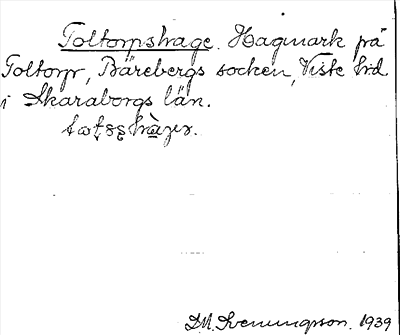 Toltorpshage. Hagmark på
Toltorp, Bärebergs socken, Viste hd
i Skaraborgs län.
D.M. Sveningson. 1939